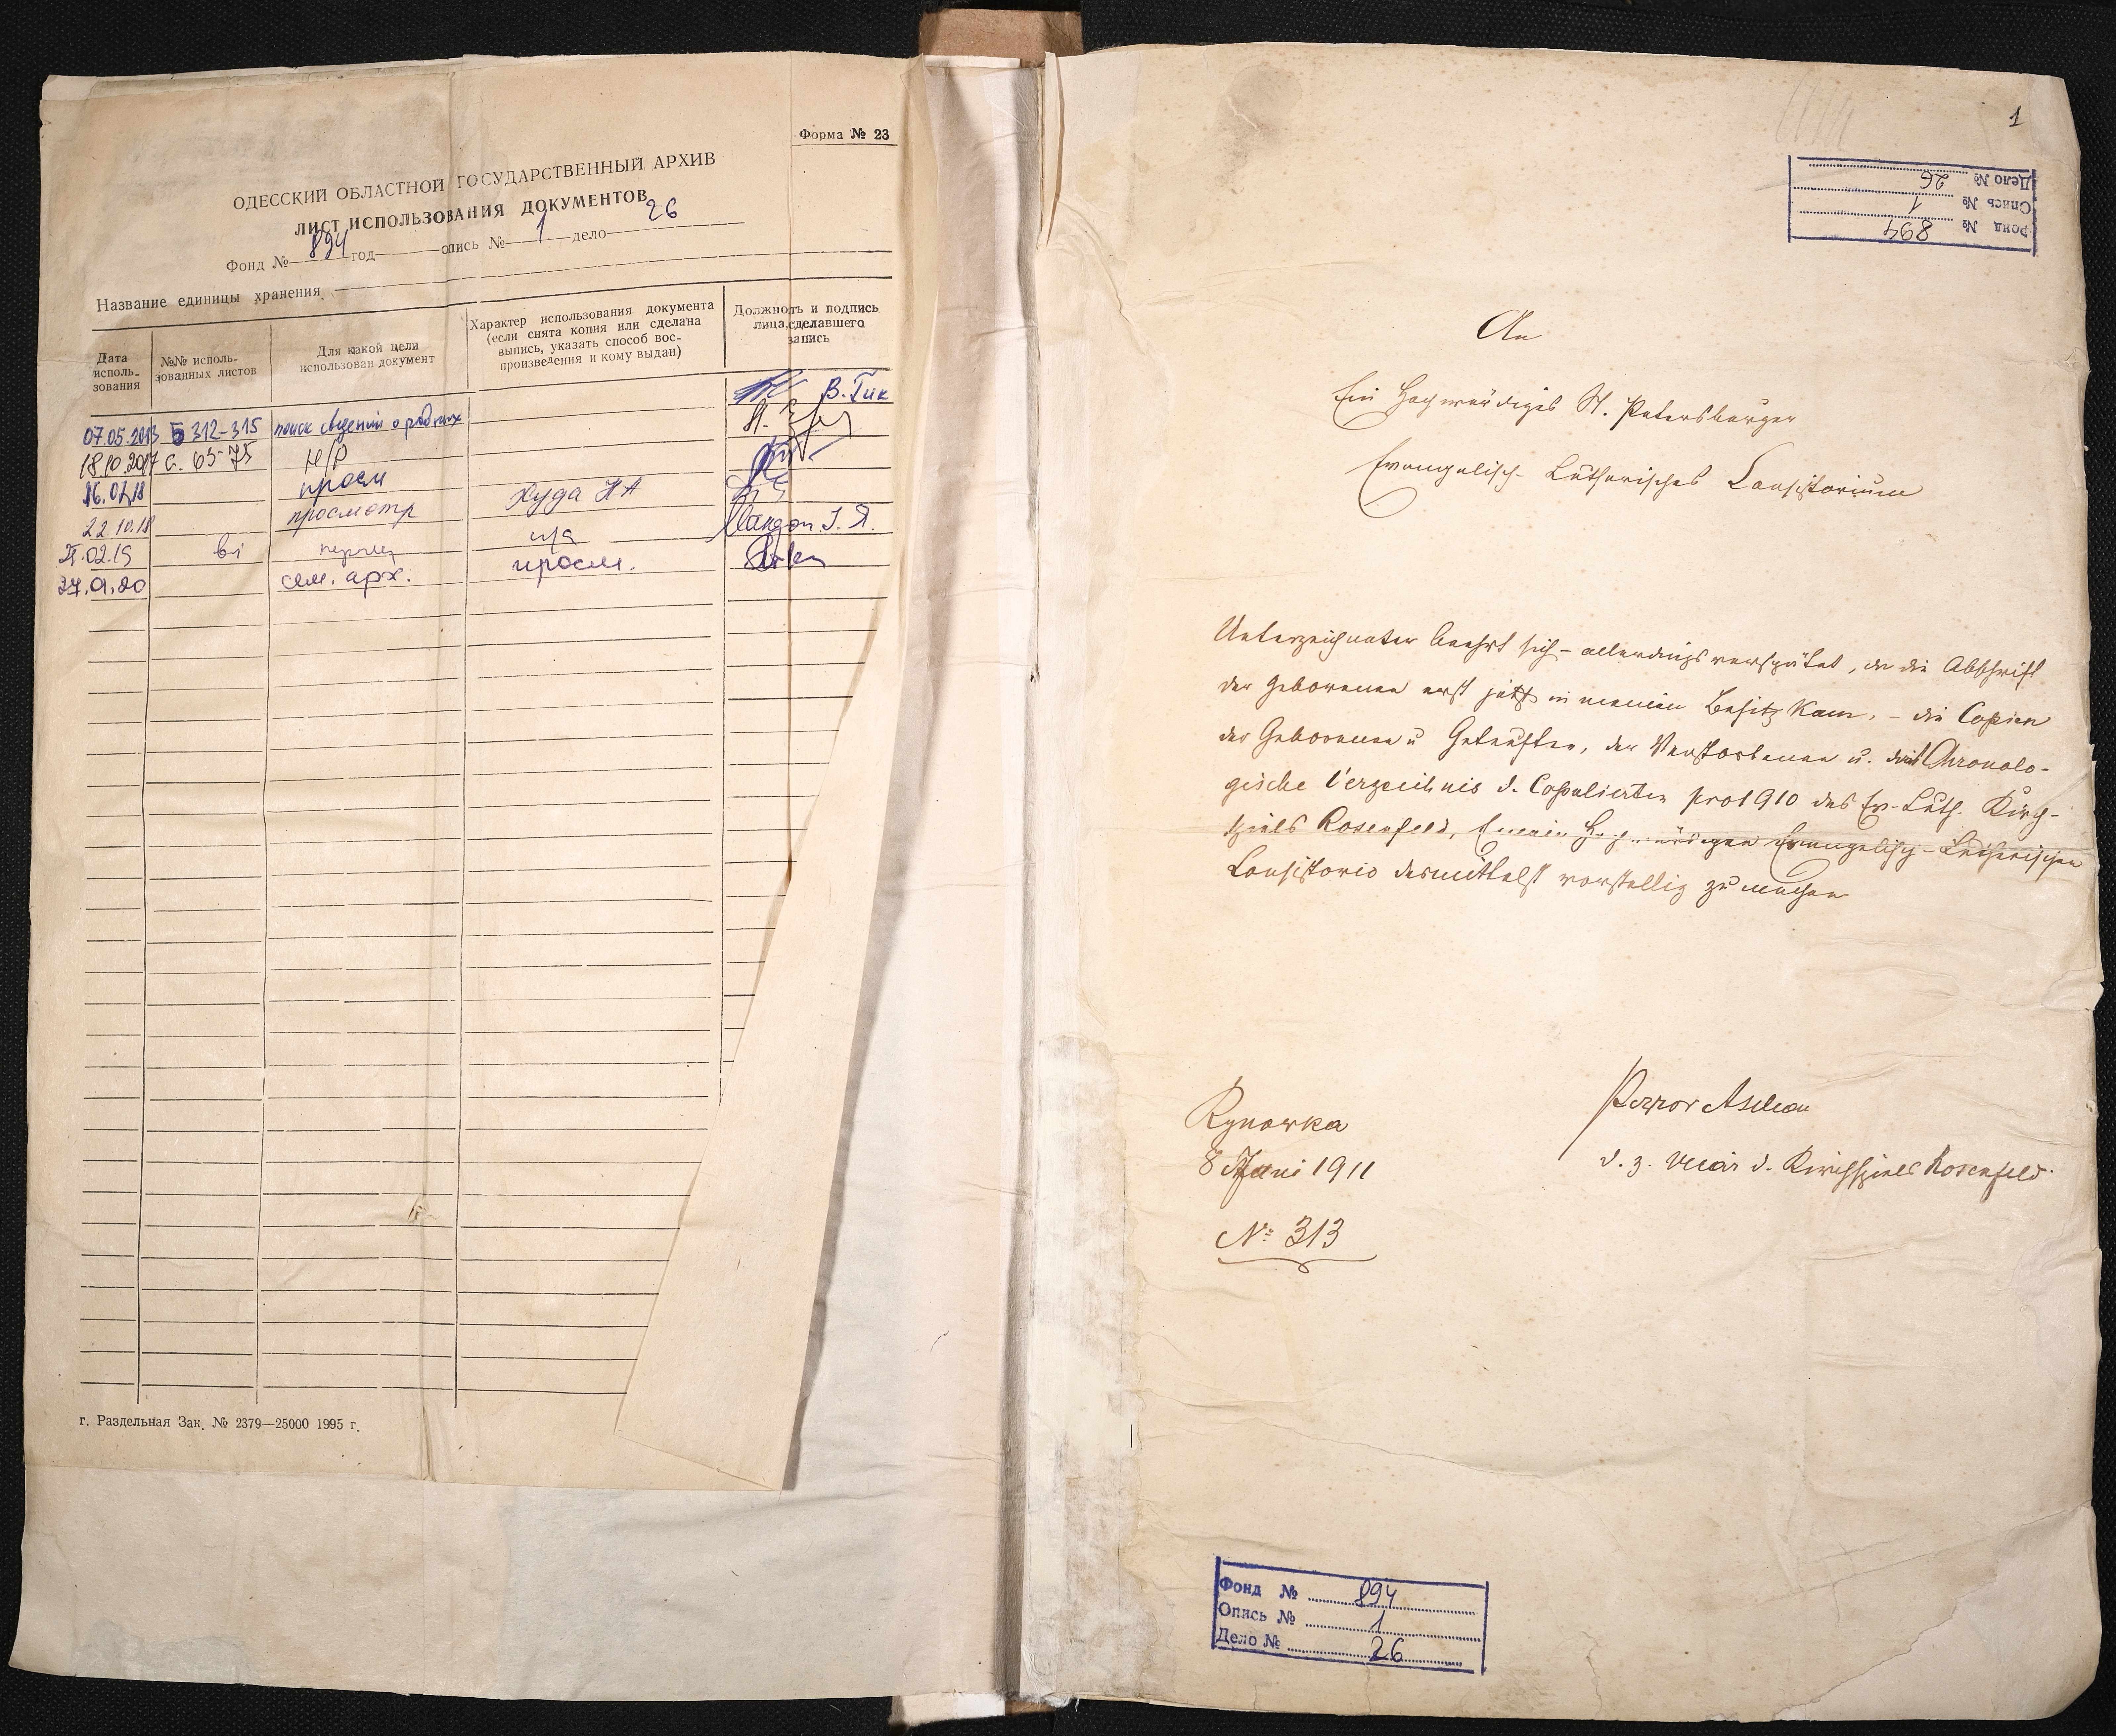 Форма № 23
ОДЕССКИЙ ОБЛАСТНОЙ ГОСУДАРСТВЕННЫЙ АРХИВ
ЛИСТ ИСПОЛЬЗОВАНИЯ ДОКУМЕНТОВ
Фонд № 894 год опись № 1 дело 26
Название единицы хранения
Дата исполь-
зования
№№ исполь-
зованных листов
Для какой цели
использован документ
Характер использования документа
(если снята копия или сделана
выпись, указать способ вос-
произведения и кому выдан)
Должноть и подпись
лица, сделавшего
запись
07.05.2013 Б 312-315 поиск сведений о родных В. Гик
18.10.2017 с. 65-75 Н/Р
16.07.18 просм
22.10.18 просмотр Худа НА
02.19 Ландон I. Я.
27.01.20 сем. арх. просм.
г. Раздельная Зак. № 2379—25000 1995 г.
1
Фонд № 894
Опись № 1
Дело № 26
An
Ein Hochwürdiges St. Petersburger
Evangelisch-Lutherisches Consistorium
Unterzeichneter beehrt sich – allerdings verspätet, da die Abschrift
der Geborenen erst jetzt in meinen Besitz kam, – die Copien
der Geborenen u Getauften, der Verstorbenen u. das Chronolo-
gische Verzeichnis d. Copulierten pro 1910 des Ev.-Luth. Kirch-
spiels Rosenfeld, Einem Hochwürdigen Evangelisch-Lutherischen
Consistorio desmittelst vorstellig zu machen
Rynowka
8 Juni 1911
№ 313
Pastor
d. z. Vicar d. Kirchspiels Rosenfeld.
Фонд № 894
Опись № 1
Дело № 26